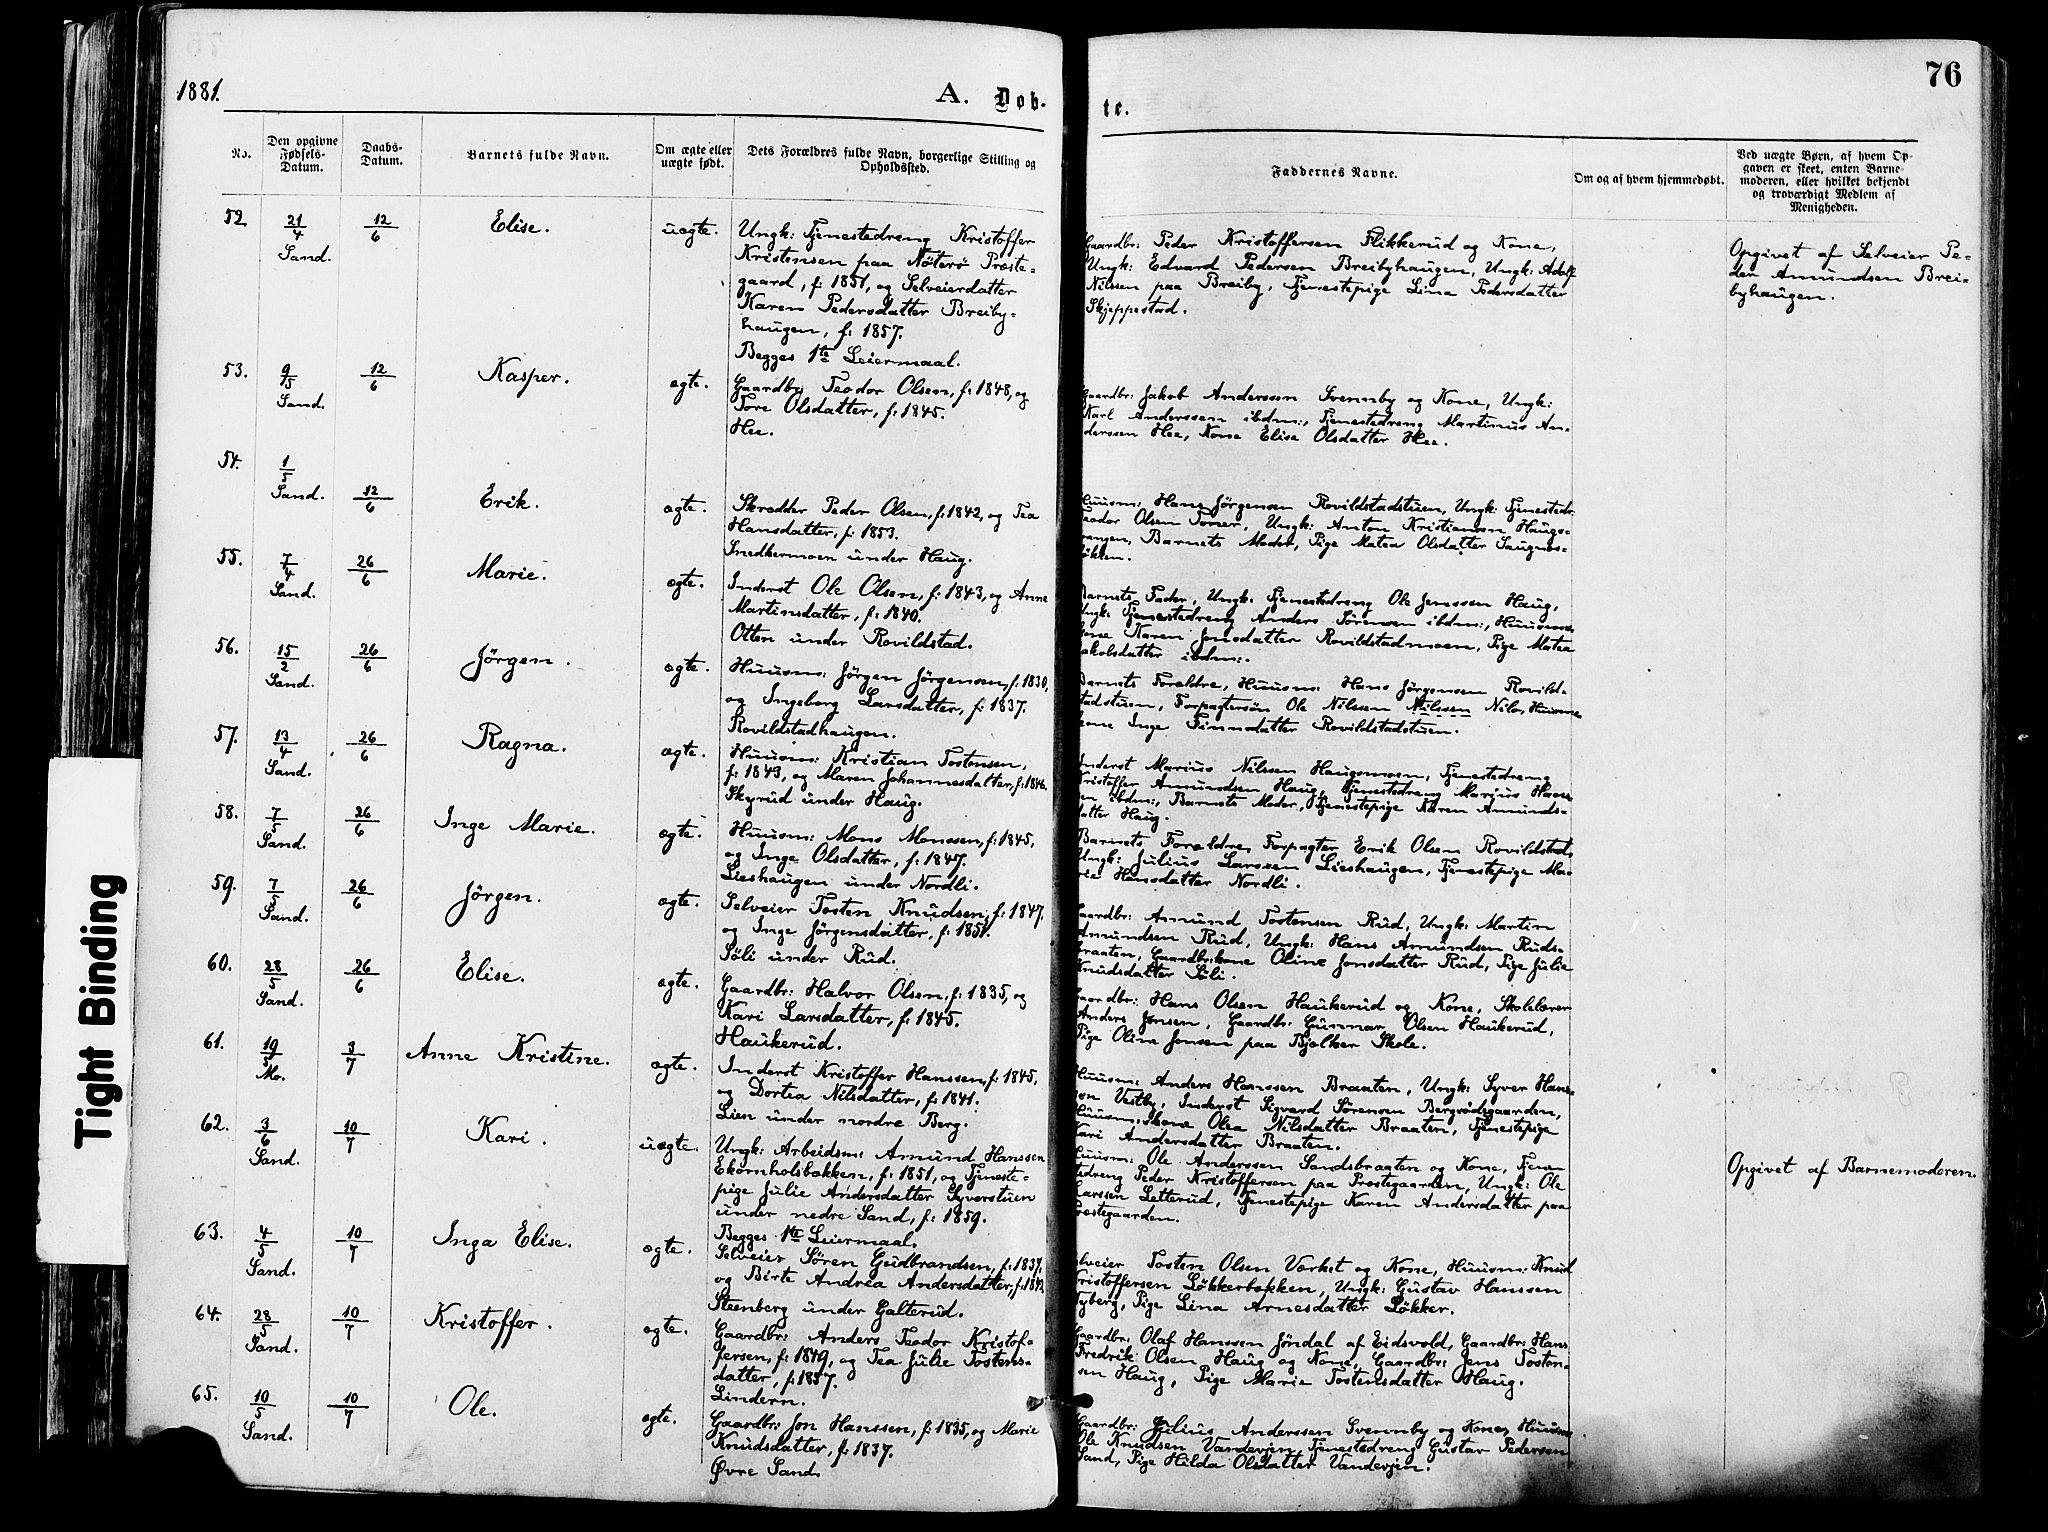 76
1881.
A. Døb-
te.
No.
Den opgivne Fødsels-Datum.
Daabs-Datum.
Barnets fulde Navn.
Om ægte eller uægte født.
Dets Forældres fulde Navn, borgerlige Stilling og Opholdssted.
Faddernes Navne.
Om og af hvem hjemmedøbt.
Ved uægte Børn, af hvem Op-
gaven er skeet, enten Barne-
moderen, eller hvilket bekjendt
og troværdigt Medlem af
Menigheden.
52 21/4 Sand. 12/6 Elise. uægte.
Ungk: Tjenestedreng Kristoffer
Kristensen paa Nøterø Præste-
gaard, f: 1851, og Selveierdatter
Karen Pedersdatter Breiby-
haugen, f: 1857.
Begges 1te Leiermaal.
Gaardbr: Peder Kristoffersen Flikkerud og Kone,
Ungk: Edvard Pedersen Breibyhaugen, Ungk: Adolf
Nilssen paa Breiby, Tjenestepige Lina Pedersdatter
Skjeppestad.
Opgivet af Selveier Pe-
der Amundsen Brei-
byhaugen.
53. 9/5 Sand. 12/6 Kasper. ægte.
Gaardbr: Teodor Olsen, f: 1848, og
Tore Olsdatter, f: 1845.
Hee.
Gaardbr: Jakob Anderssen Svennby og Kone, Ungk:
Karl Anderssen ibdm:, Tjenestedreng Martinus An-
derssen Hee, Kone Elise Olsdatter Hee.
54. 1/5 Sand. 12/6 Erik. ægte.
Skrædder Peder Olsen, f: 1842, og Tea
Hansdatter, f: 1853.
Snedkermoen under Haug.
Huusm: Hans Jörgensen Rovildstadstuen, Ungk: Tjenestedr:
Teodor Olsen Toner, Ungk: Anton Kristiansen Haugs-
vangen, Barnets Moder, Pige Matea Olsdatter Saugnes-
løkken.
55. 7/4 Sand. 26/6 Marie. ægte.
Inderst Ole Olsen, f: 1843, og Anne
Martinsdatter, f: 1840.
Otten under Rovildstad.
Barnets Fader, Ungk: Tjenestedreng Ole Jenssen Haug,
Ungk: Tjenestedreng Anders Sørensen ibdm:, Huusms
Kone Karen Jonsdatter Rovildstadmoen, Pige Matea
Jakobsdatter ibdm:.
56. 15/2 Sand. 26/6 Jörgen. ægte.
Huusm: Jörgen Jörgensen, f: 1830,
og Ingeborg Larsdatter, f: 1837.
Rovildstadhaugen.
Barnets Forældre, Huusm: Hans Jörgensen Rovild-
stadstuen, Forpagtersön Ole Nilssen Nilssen Nilo, Huusms
kone Inge Finnsdatter Rovildstadstuen.
57. 13/4 Sand. 26/6 Ragna. ægte.
Huusm: Kristian Tostensen,
f: 1843, og Maren Johannesdatter, f: 1846.
Skyrud under Haug.
Inderst Marius Nilssen Haugsmoen, Tjenestedreng
Kristoffer Amundsen Haug, Tjenestedreng Marius Hans-
sen ibdm:, Barnets Moder, Tjenestepige Karen Amunds-
datter Haug.
58. 7/5 Sand. 26/6 Inge Marie. ægte.
Huusm: Mons Monssen, f: 1845,
og Inge Olsdatter, f: 1847.
Lieshaugen under Nordli.
Barnets Forældre, Forpagter Erik Olsen Rovildstad,
Ungk: Julius Larssen Lieshaugen, Tjenestepige Ma-
rie Hansdatter Nordli.
59. 7/5 Sand. 26/6 Jörgen. ægte.
Selveier Tosten Knudsen, f: 1847,
og Inge Jörgensdatter, f: 1851.
Söli under Rud.
Gaardbr: Amund Tostensen Rud, Ungk: Martin
Amundsen Rud, Ungk: Hans Amundsen Ruds-
braaten, Gaardbr:kone Oline Jonsdatter Rud, Pige Julie
Knudsdatter Söli.
60. 28/5 Sand. 26/6 Elise. ægte.
Gaardbr: Halvor Olsen, f: 1835, og
Kari Larsdatter, f: 1845.
Haukerud.
Gaardbr: Hans Olsen Haukerud og Kone, Skolelærer
Anders Jensen, Gaardbr: Gunnar Olsen Haukerud,
Pige Oline Jensen paa Bjølker Skole.
61. 19/5 Mo. 3/7 Anne Kristine. ægte.
Inderst Kristoffer Hanssen, f: 1845,
og Dortea Nilsdatter, f: 1841.
Lien under nordre Berg.
Huusm: Anders Hanssen Braaten, Ungk: Syver Hans-
sen Vestby, Inderst Sigvard Sörensen Bergsødegaarden,
Huusm:skone Olea Nilsdatter Braaten, Tjenestepige
Kari Andersdatter Braaten.
62. 3/6 Sand. 10/7 Kari. uægte.
Ungk: Arbeidsm: Amund Hanssen
Ekornholsbakken, f: 1851, og Tjeneste-
pige Julie Andersdatter Syverstuen
under nedre Sand, f: 1859.
Begges 1te Leiermaal.
Huusm: Ole Anderssen Sandsbraaten og Kone, Tjene-
stedreng Peder Kristoffersen paa Præstegaarden, Ungk: Ole
Larssen Letterud, Tjenestepige Karen Andersdatter paa
Præstegaarden.
Opgivet af Barnemoderen.
63. 4/5 Sand. 10/7 Inga Elise. ægte.
Selveier Sören Gudbrandsen, f: 1837,
og Birte Andrea Andersdatter, f: 1843
Steenberg under Galterud.
Selveier Tosten Olsen Varket og Kone, Huusm: Knud
Kristoffersen Løkkerbakken, Ungk: Gustav Hanssen
Nyberg, Pige Lina Arnesdatter Løkker.
64. 28/5 Sand. 10/7 Kristoffer. ægte.
Gaardbr: Anders Teodor Kristof-
fersen, f: 1849, og Tea Julie Tostens-
datter, f: 1857.
Lindern.
Gaardbr: Olaf Hanssen Jöndal af Eidsvold, Gaardbr: Hans
Fredrik Olsen Haug og Kone, Gaardbr: Jens Tosten-
sen Haug, Pige Marie Tostensdatter Haug.
65. 10/5 Sand. 10/7 Ole. ægte.
Gaardbr: Jon Hanssen, f: 1835, og Marie
Knudsdatter, f: 1837.
Øvre Sand.
Gaardbr: Julius Anderssen Svennby og Kone, Huusm
Ole Knudsen Vandevjen, Tjenestedreng Gustav Pedersen
Sand, Pige Hilda Olsdatter Vandevjen.
Tight Binding